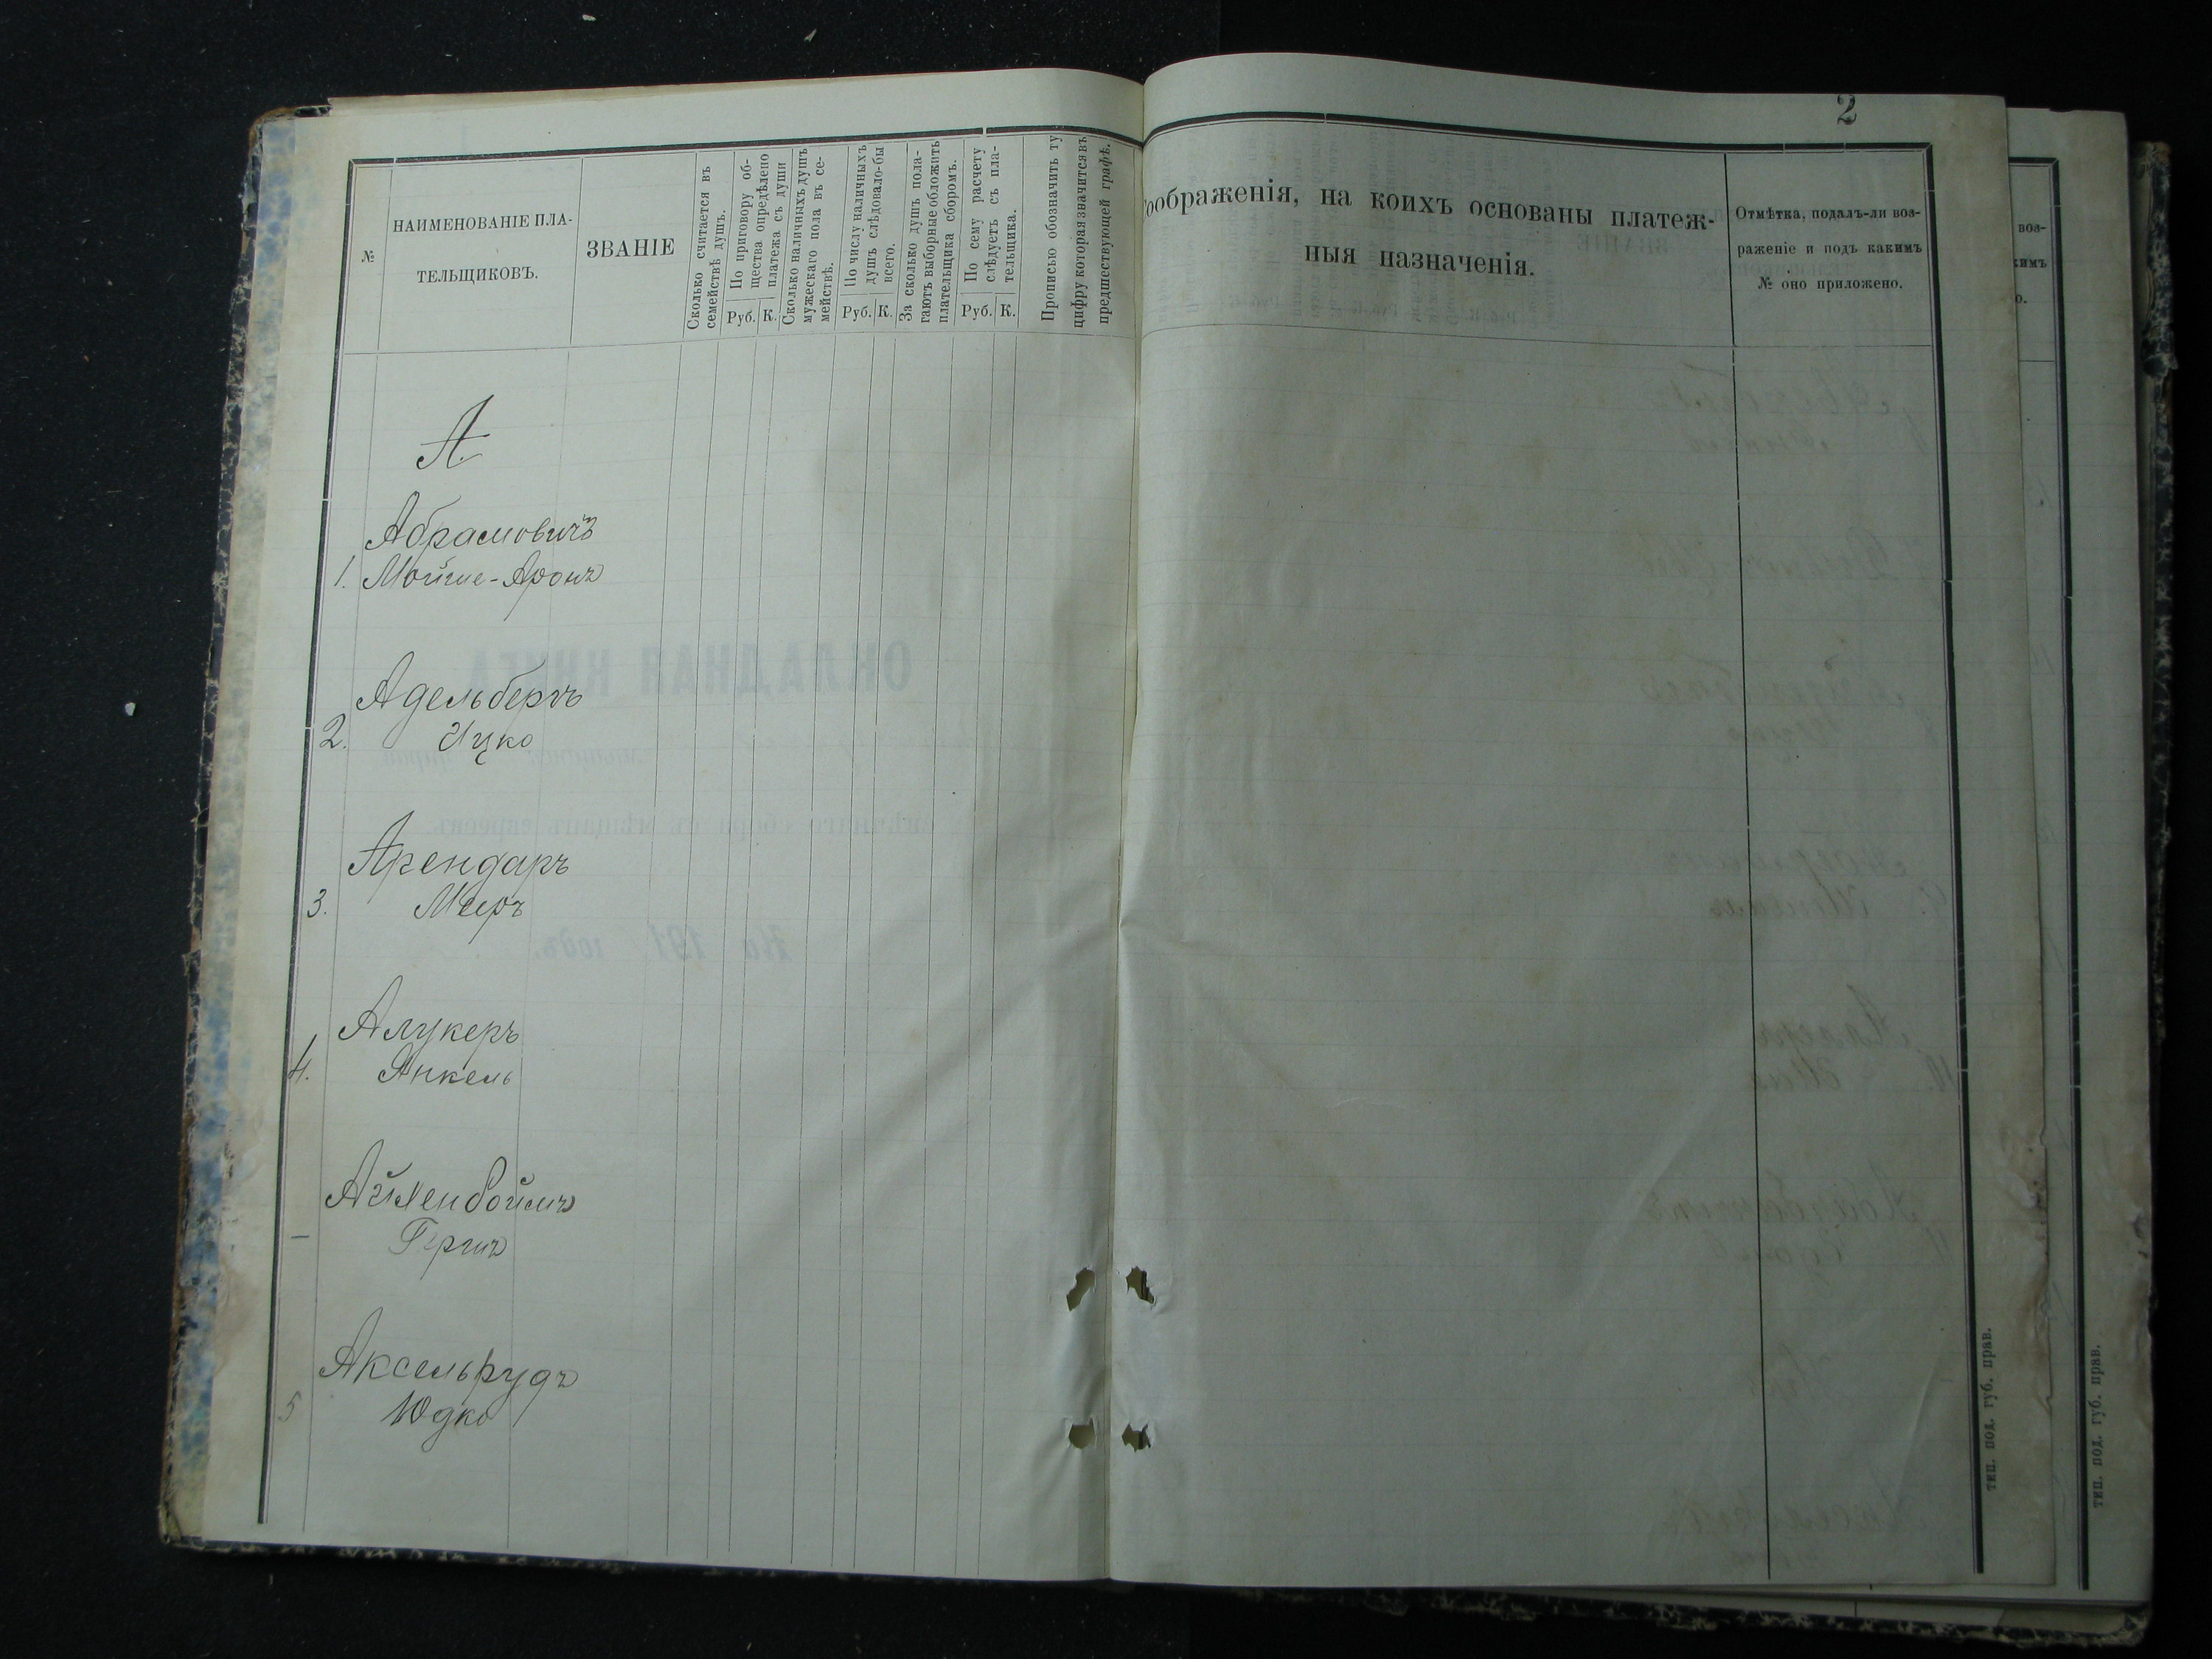 2
№
НАИМЕНОВАНІЕ ПЛА-
ТЕЛЬЩИКОВЪ.
ЗВАНІЕ
Сколько считается въ
семействѣ душъ.
По приговору об-
щества опредѣлено
платежа съ души
Руб. К.
Сколько наличныхъ душъ
мужескаго пола въ се-
мействѣ.
По числу наличныхъ
душъ слѣдовало-бы
всего.
Руб. К.
За сколько душъ пола-
гаютъ выборные обложить
плательщика сборомъ.
По сему расчету
слѣдуетъ съ пла-
тельщика.
Руб. К.
Прописью обозначить ту
цифру которая значится въ
предшествующей графѣ.
соображенія, на коихъ основаны платеж-
ныя назначенія.
Отмѣтка, подалъ-ли воз-
раженіе и подъ какимъ
№ оно приложено.
А.
Абрамовичъ
1. Мойше-Аронъ
Адельбергъ
2. Ицко
Арендаръ
3. Мееръ
Алукеръ
4. Янкель
Айзенбоймъ
–
Аксельрудъ
5 Юдко
тип. под. губ. прав.
воз-
кимъ
о.
тип. под. губ. прав.